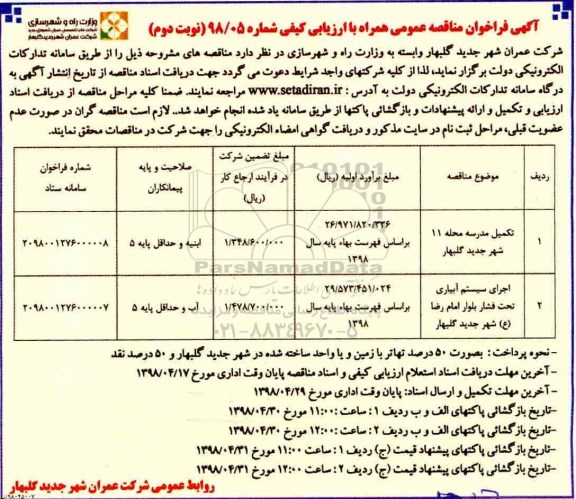 وزارت راه و شهرسازی
شرکت عمران شهر جدید گلبهار
آگهی فراخوان مناقصه عمومی همراه با ارزیابی کیفی شماره ۹۸/۰۵ (نوبت دوم)
شرکت عمران شهر جدید گلبهار وابسته به وزارت راه و شهرسازی در نظر دارد مناقصه های مشروحه ذیل را از طریق سامانه تدارکات
الکترونیکی دولت برگزار نماید، لذا از کلیه شرکتهای واجد شرایط دعوت می گردد جهت دریافت اسناد مناقصه از تاریخ انتشار آگهی به
درگاه سامانه تدارکات الکترونیکی دولت به آدرس : www.setadiran.ir مراجعه نمایند. ضمنا کلیه مراحل مناقصه از دریافت اسناد
ارزیابی و تکمیل و ارائه پیشنهادات و بازگشائی پاکتها از طریق سامانه یاد شده انجام خواهد شد.. لازم است مناقصه گران در صورت عدم
عضویت قبلی، مراحل ثبت نام در سایت مذکور و دریافت گواهی امضاء الکترونیکی را جهت شرکت در مناقصات محقق نمایند.
ردیف | موضوع مناقصه | مبلغ برآورد اولیه (ریال) | مبلغ تضمین شرکت در فرآیند ارجاع کار (ریال) | صلاحیت و پایه پیمانکاران | شماره فراخوان سامانه ستاد
۱ | تکمیل مدرسه محله ۱۱ شهر جدید گلبهار | ۲۶/۹۷۱/۸۲۰/۳۳۶ براساس فهرست بهاء پایه سال ۱۳۹۸ | ۱/۳۴۸/۶۰۰/۰۰۰ | ابنیه و حداقل پایه ۵ | ۲۰۹۸۰۰۱۲۷۶۰۰۰۰۰۸
۲ | اجرای سیستم آبیاری تحت فشار بلوار امام رضا (ع) شهر جدید گلبهار | ۲۹/۵۷۳/۴۵۱/۰۲۴ براساس فهرست بهاء پایه سال ۱۳۹۸ | ۱/۴۷۸/۷۰۰/۰۰۰ | آب و حداقل پایه ۵ | ۲۰۹۸۰۰۱۲۷۶۰۰۰۰۰۷
ParsNamadData
۰۲۱-۸۸۳۴۹۶۷۰-۵
– نحوه پرداخت : بصورت ۵۰ درصد تهاتر با زمین و یا واحد ساخته شده در شهر جدید گلبهار و ۵۰ درصد نقد
– آخرین مهلت دریافت اسناد استعلام ارزیابی کیفی و اسناد مناقصه پایان وقت اداری مورخ ۱۳۹۸/۰۴/۱۷
– آخرین مهلت تکمیل و ارسال اسناد: پایان وقت اداری مورخ ۱۳۹۸/۰۴/۲۹
–تاریخ بازگشائی پاکتهای الف و ب ردیف ۱ : ساعت :۱۱:۰۰ مورخ ۱۳۹۸/۰۴/۳۰
–تاریخ بازگشائی پاکتهای الف و ب ردیف ۲ : ساعت : ۱۲:۰۰ مورخ ۱۳۹۸/۰۴/۳۰
–تاریخ بازگشائی پاکتهای پیشنهاد قیمت (ج) ردیف ۱ : ساعت ۱۱:۰۰ مورخ ۱۳۹۸/۰۴/۳۱
–تاریخ بازگشائی پاکتهای پیشنهاد قیمت (ج) ردیف ۲ : ساعت : ۱۲:۰۰ مورخ ۱۳۹۸/۰۴/۳۱
روابط عمومی شرکت عمران شهر جدید گلبهار